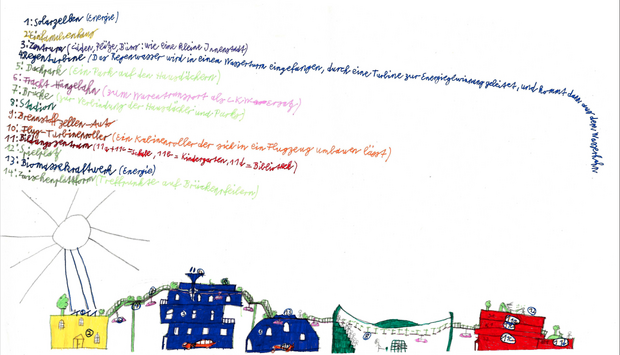 1: Solarzellen (Energie)
2: Einfamilienhaus
3: Zentrum (Läden, Plätze, Büros: wie eine kleine Innenstadt)
4: Regenturbine (Das Regenwasser wird in einem Wasserturm eingefangen, durch eine Turbine zur Energiegewinnung geleitet, und kommt dann aus dem Wasserhahn
5: Dachpark (ein Park auf den Hausdächern)
6: Fracht-Hängebahn (zum Warentransport als LKW
7: Brücke (zur Verbindung der Hausdächer und Parks)
8: Stadion
9: Brennstoffzellen-Auto
10: Flug-Turbinenroller (ein Kabinenroller der sich in ein Flugzeug umbauen lässt)
11: Bildungszentrum (11a = Schule, 11c = Kindergarten, 11d = Bibliothek)
12: Spielplatz
13: Biomassekraftwerk (Energie)
14: Zwischenplattform (Treffpunkte auf Brückenpfeilern)